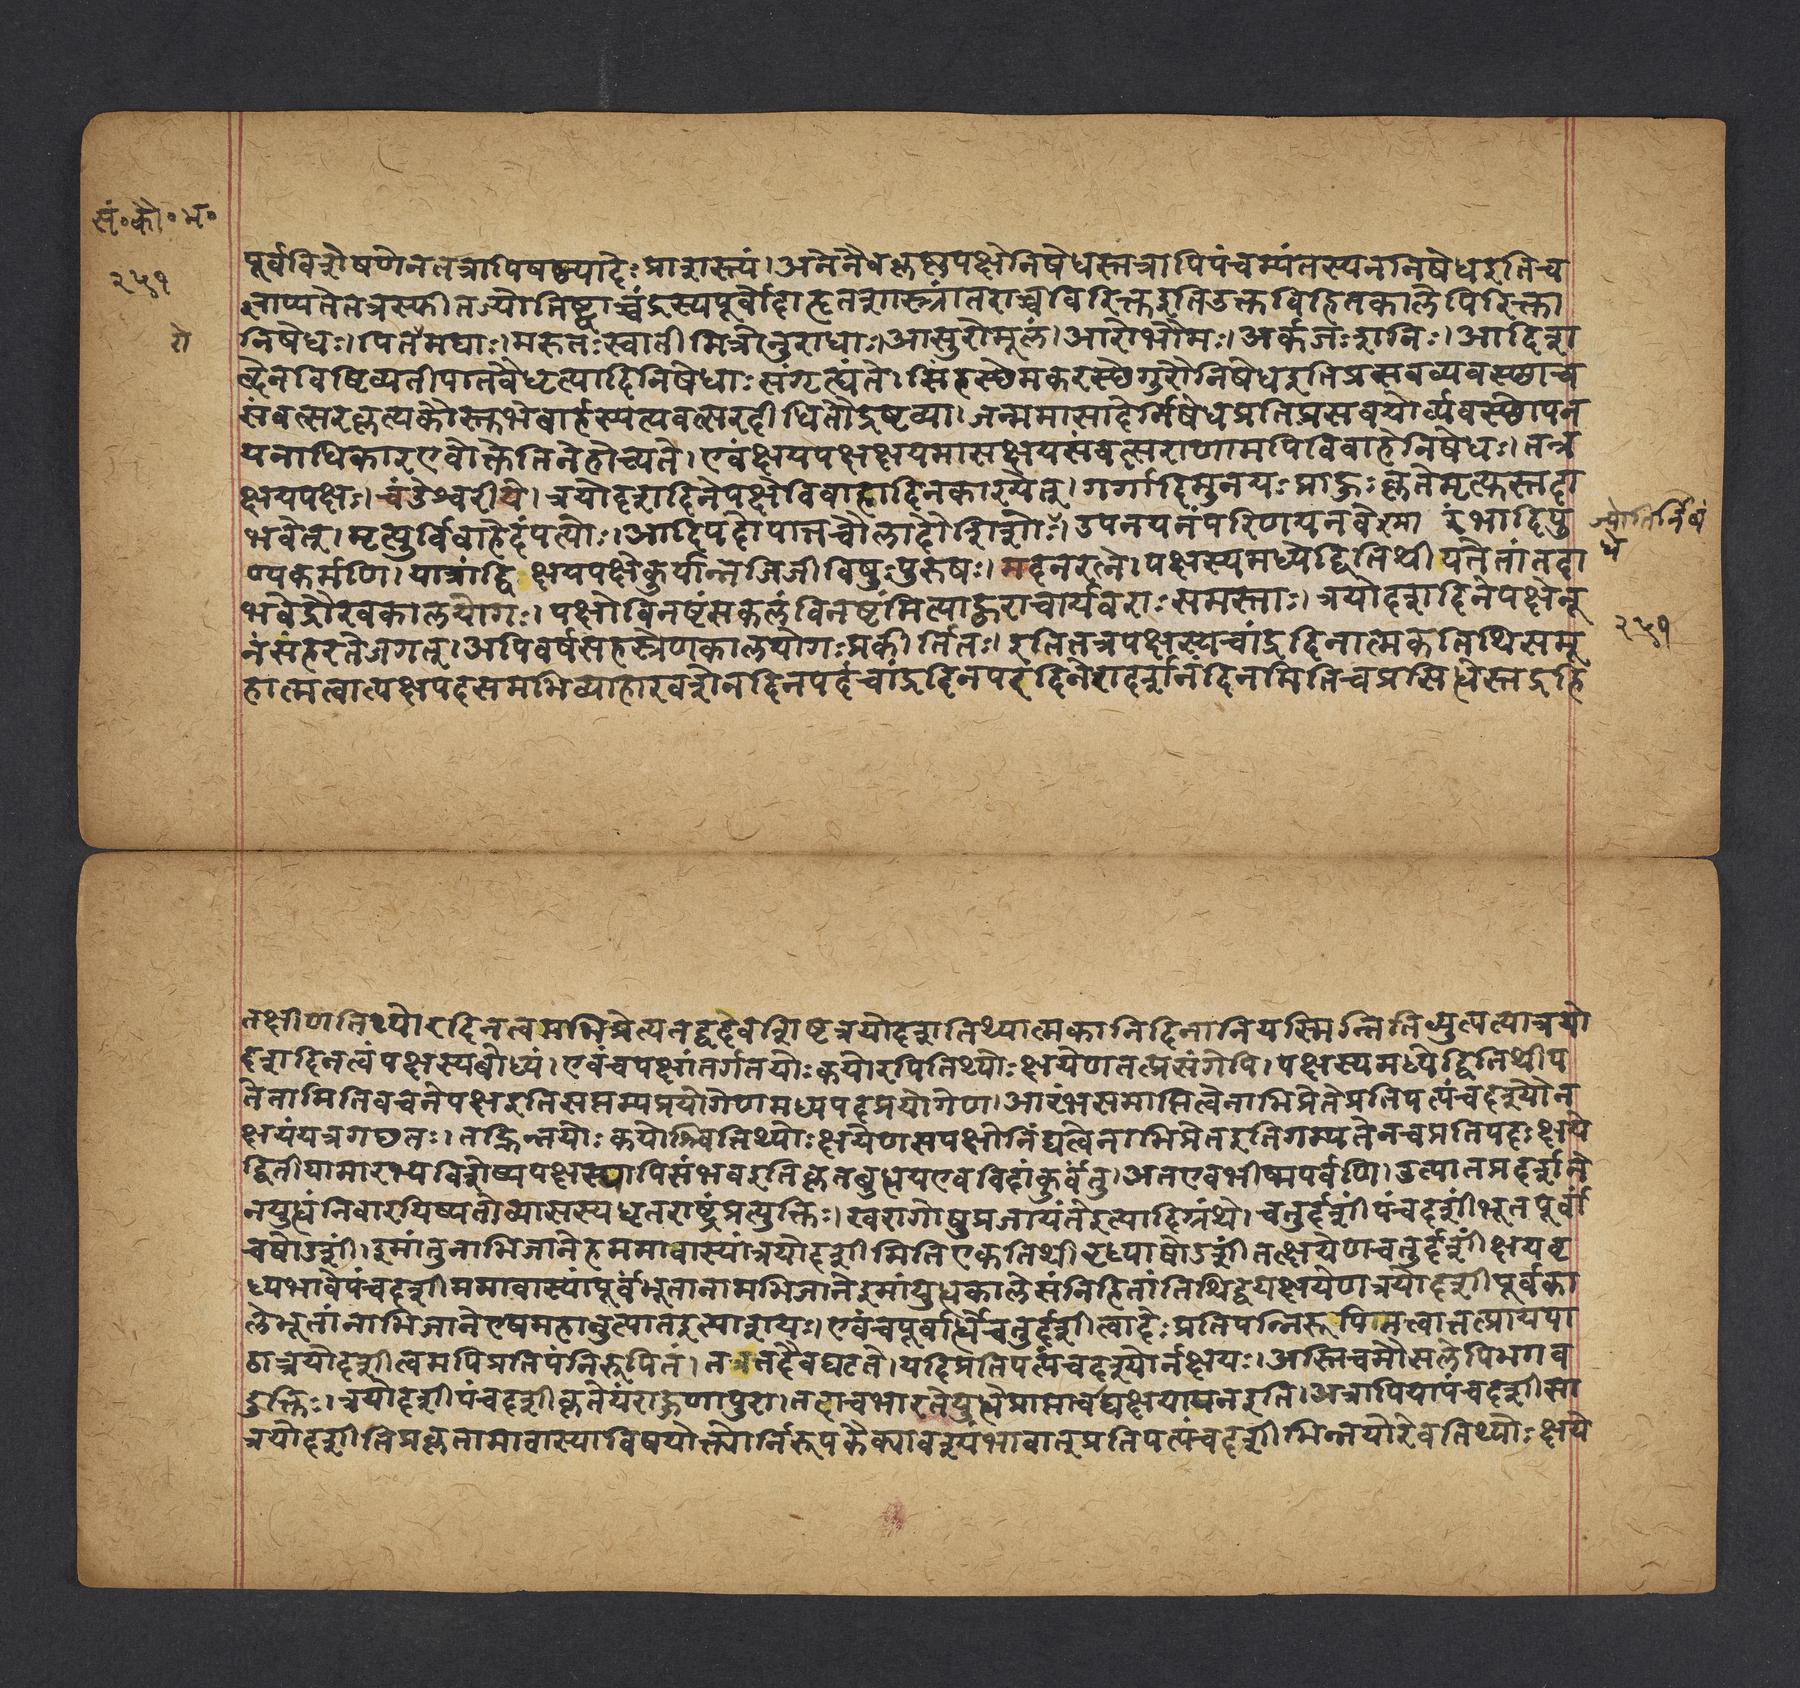 सं॰कौ॰भ॰
२५१
रो
पूर्वविशेषणेनतत्रापिषष्ठ्यादेःप्राशस्त्यं।अनेनैवकृष्णपक्षेनिषेधस्तत्रापिपंचम्यंतस्यननिषेधइतिच
ज्ञाप्यतेतत्रस्फीतज्योतिष्ट्वाच्चंद्रस्यपूर्वोदाहृतशास्त्रांतराच्चविरिक्तइतिउक्तविहितकालेपिरिक्ता
निषेधः।पितॄमघाः।मरुतःस्वातीमित्रोनुराधा।आसुरोमूलं।आरोभौमः।अर्कजःशनिः।आदिश
ब्देनविष्टिव्यतीपातवैधृत्यादिनिषेधाःसंगृत्यंते।सिंहस्थेमकरस्थेगुरौनिषेधइतिप्रसवव्यवस्थाच
संवत्सरकृत्यकौस्तुभेबार्हस्पत्यवत्सरदीधितौद्रष्टव्या।जन्ममासादेर्निषेधप्रतिप्रसवयोर्व्यवस्थोपन
यनाधिकारएवोक्तेतिनेहोच्यते।एवंक्षयपक्षक्षयमासक्षयसंवत्सराणामपिविवाहेनिषेधः।तत्र
क्षयपक्षः।चंडेश्वरीये।त्रयोदशदिनेपक्षेविवाहादिनकारयेत्।गर्गादिमुनयःप्राहुःकृतेमृत्युस्तदा
भवेत्।मृत्युर्विवाहेदंपत्योः।आदिपदोपात्तचौलादौशिशोः।उपनयनंपरिणयनवेश्मा रंभादिपु
ज्योतिर्निबं
धे
ण्यकर्मणि।यात्रांद्वि क्षयपक्षेकुर्यान्नजिजीविषुःपुरुषः।मदनरत्ने।पक्षस्यमध्येद्वितिथीपतेतांतदा
भवेद्रौरवकालयोगः।पक्षेविनष्टंसकलंविनष्टमित्याहुराचार्यवराःसमस्ताः।त्रयोदशदिनेपक्षेनू
नंसंहरतेजगत्।अपिवर्षसहस्रेणकालयोगःप्रकीर्तितः।इतितत्रपक्षस्यचांद्रदिनात्मकतिथिसमू
२५१
हात्मत्वात्पक्षपदसमभिव्याहारवशेनदिनपदंचांद्रदिनपरंदिनेशदर्शनंदिनमितिचप्रसिधेस्तद्रहि
तक्षीणतिथ्योरदिनत्वमभिप्रेत्यतद्वदेवशिष्टत्रयोदशतिथ्यात्मकानिदिनानियस्मिन्नितिव्युत्पत्यात्रयो
दशदिनत्वंपक्षस्यबोध्यं।एवंचपक्षांतर्गतयोःकयोरपितिथ्योःक्षयेणतत्प्रसंगेपि।पक्षस्यमध्येद्वितिथीप
तेतामितिवचनेपक्षइतिसप्तम्यप्रयोगेणमध्यपदप्रयोगेण।आरंभसमाप्तित्वेनाभिप्रेतेप्रतिपत्पंचदश्यौन
क्षयंयत्रगछतः।तद्भिन्नयोःकयोश्चित्तिथ्योःक्षयेणसपक्षोनिंद्यत्वेनाभिप्रेतइतिगम्यतेनचप्रतिपदःक्षये
द्वितीयामारभ्यविशेष्यपक्षस्यापिसंभवइतिकृतबुधयएवविदांकुर्वंतु।अतएवभीष्मपर्वणि।उत्पातप्रदर्शने
नयुधंनिवारयिष्यतोव्यासस्यधृतराष्ट्रंप्रत्युक्तिः।खरागोषुप्रजायंतेइत्यादिग्रंथे।चतुर्दशींपंचदशींभूतपूर्वां
चषोडशीं।इमांतुनाभिजानेहममावास्यांत्रयोदशीमितिएकतिथीवृध्याषोडशींतत्क्षयेणचतुर्दशींक्षयवृ
ध्यभावेपंचदशीममावास्यांपूर्वंभूतानामभिजानेइमांयुधकालेसंनिहितांतिथिद्वयक्षयेणत्रयोदशींपूर्वका
लेभूतांनाभिजानेएषमहानुत्पातइत्याशयः।एवंचपूर्वार्धेचतुर्दशीत्वादेःप्रतिपन्निरूपितत्वात्तत्प्रायपा
ठात्रयोदशीत्वमपिप्रतिपंनिरूपितं।तत्रतदैवघटते।यदिप्रतिपत्पंचदश्योर्नक्षयः।अस्तिचमौसलेपिभगव
दुक्तिः।त्रयोदशीपंचदशीकृतेयंराहुणापुरा।तदाचभारतेयुधेप्राप्ताचाद्यक्षयायनइति।अत्रापियापंचदशीसा
त्रयोदशीतिप्रकृतामावास्याविषयोक्त्योर्निरूपकैक्यावश्यंभावात्प्रतिपत्पंचदशीभिन्नयोरेवतिथ्योःक्षये